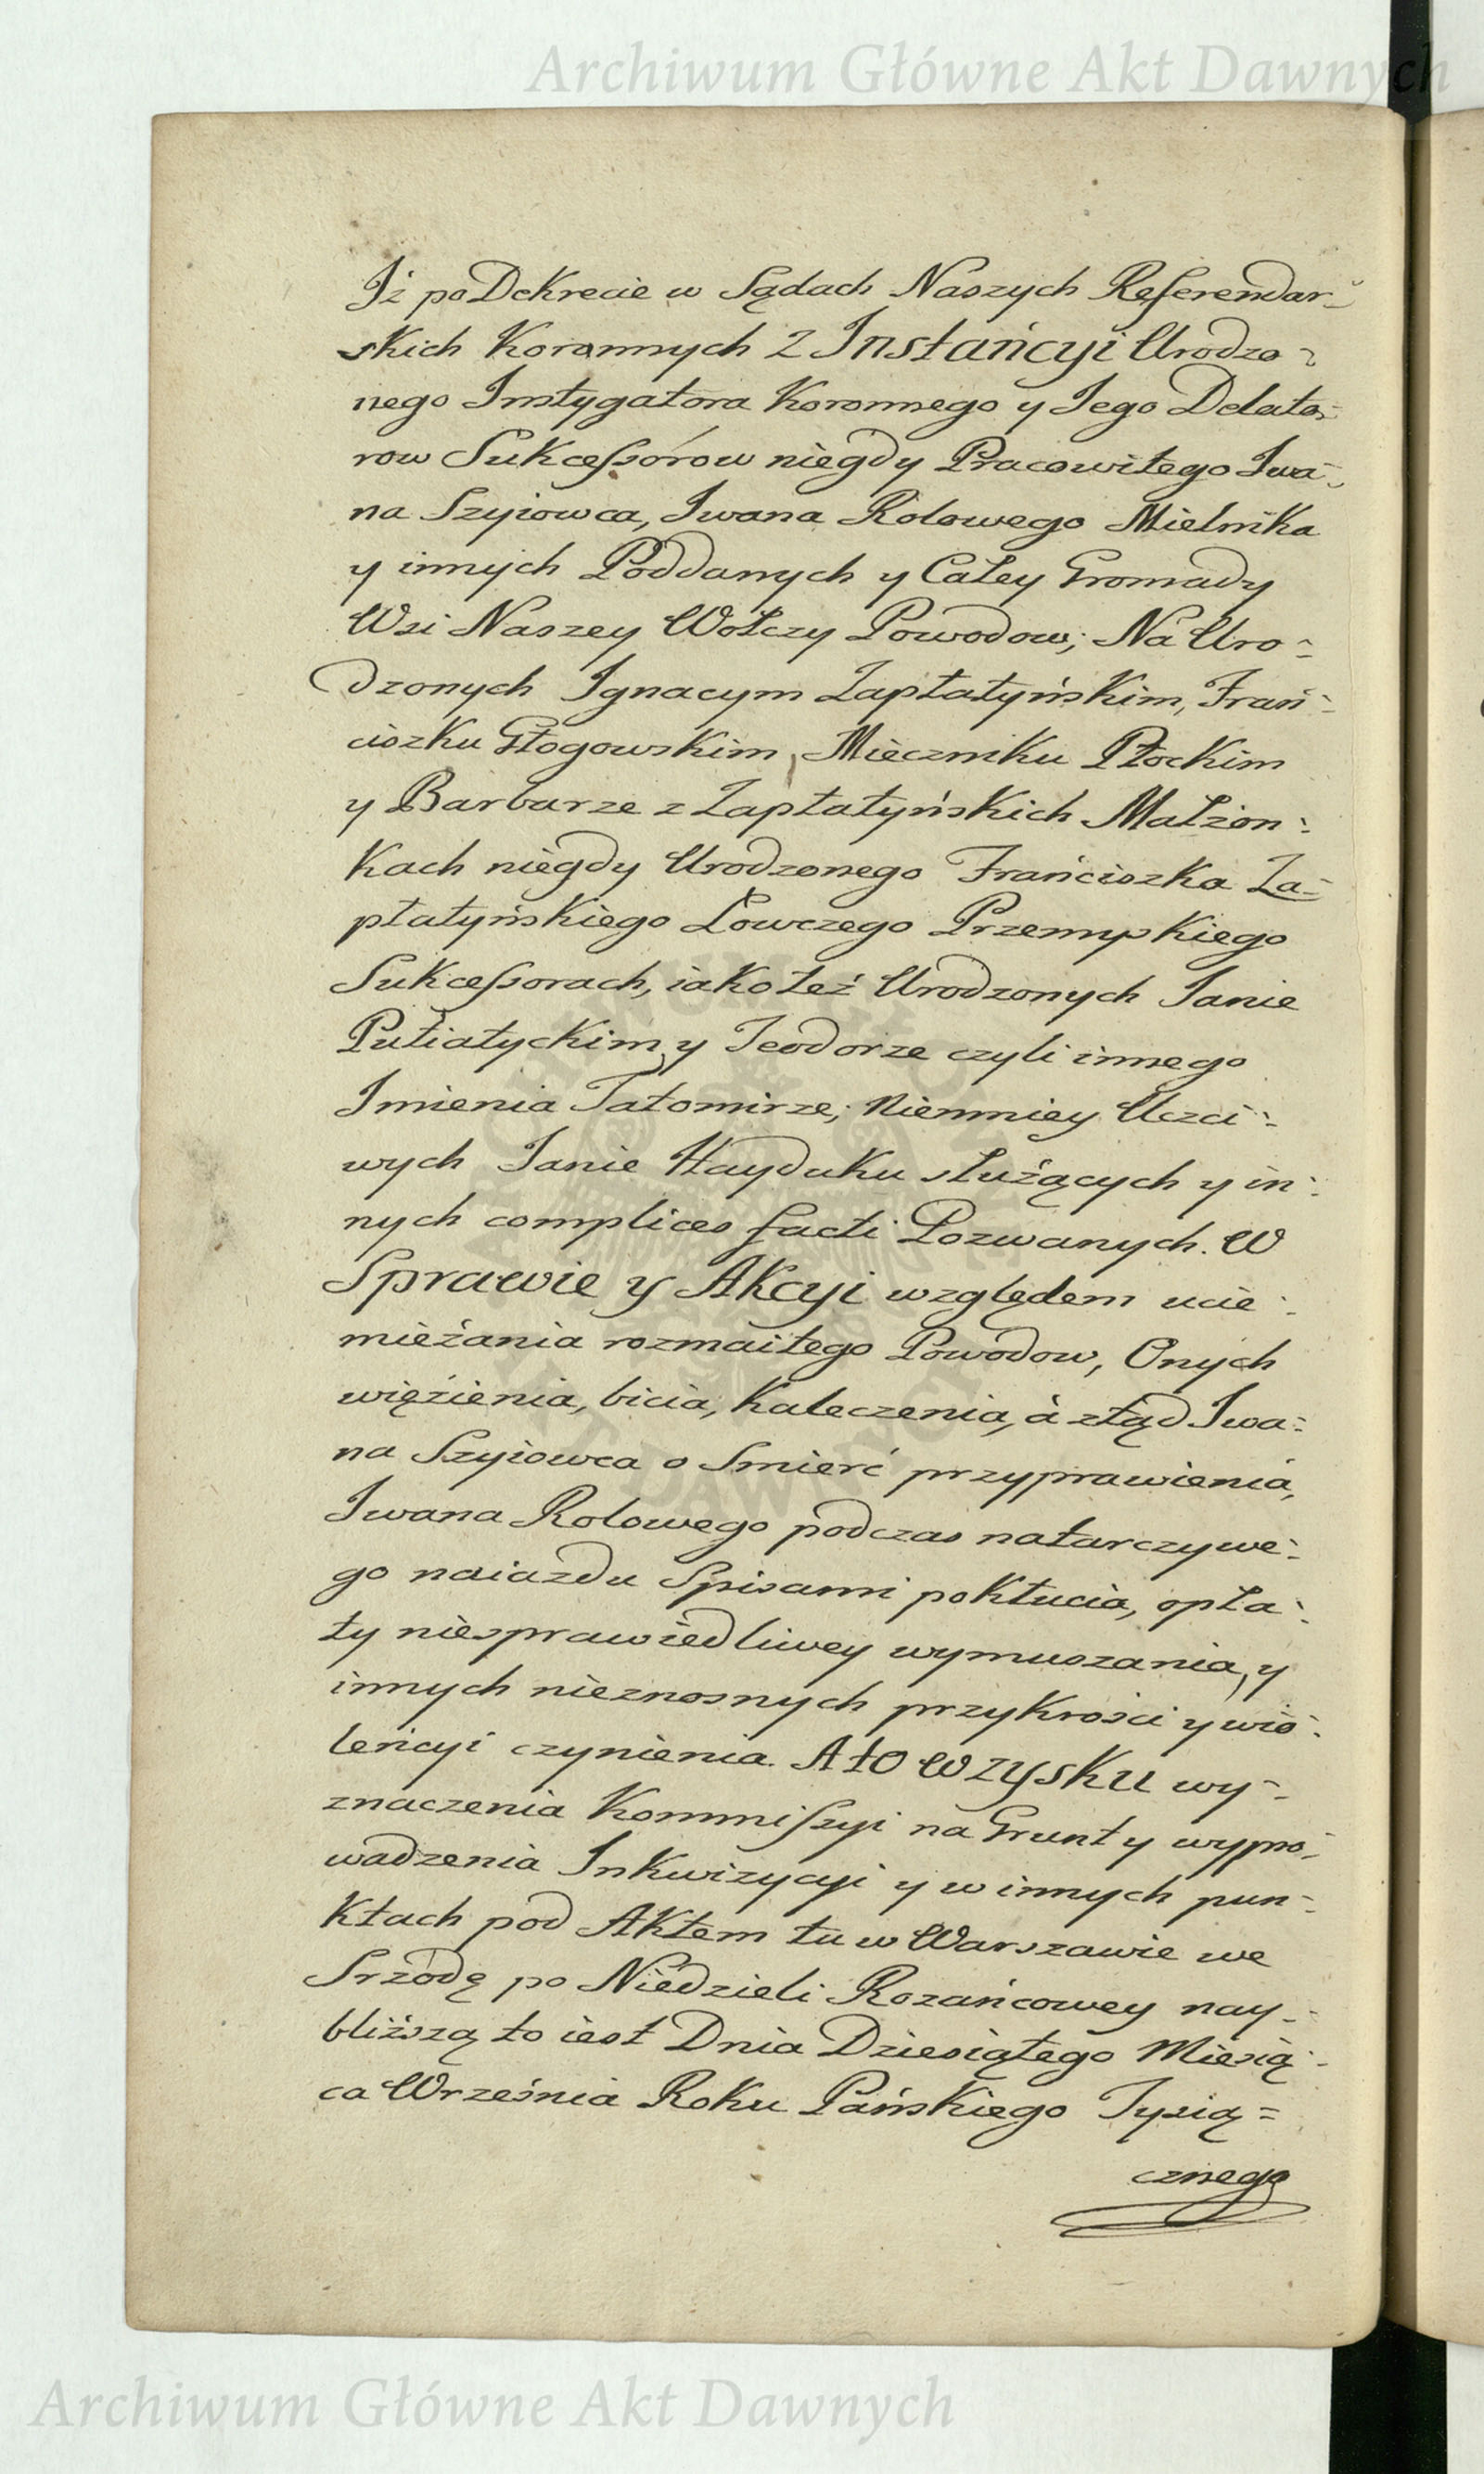 Archiwum Główne Akt Dawnych
Iż po Dekrecie w Sądach Naszych Referendar-
skich Koronnych Z Instańcyi Urodzo-
nego Instygatora Koronnego y Jego Delato-
row Sukceſsórow niegdy Pracowitego Iwa-
na Szyiowca, Iwana Rolowego Mielnika
y innych Poddanych y Całey Gromady
Wsi Naszey Wołczy Powodow; Na Uro-
dzonych Ignacym Zapłatyńskim, Frań-
ciszku Głogowskim, Mieczniku Płockim
y Barbarze z Zapłatyńskich Małżon-
kach niegdy Urodzonego Frańciszka Za-
płatyńskiego Łowczego Przemyskiego
Sukceſsorach, iako też Urodzonych Janie
Putiatyckim y Teodorze czyli innego
Imienia Tatomirze; Niemniey Uczci-
wych Janie Hayduku służących y in-
nych complices facti Pozwanych. W
Sprawie y Akcyi względem ucie-
mieżania rozmaitego Powodow, Onych
więzienia, bicia, kaleczenia, à ztąd Iwa-
na Szyiowca o Smierć przyprawienia,
Iwana Rolowego podczas natarczywe-
go naiazdu Spisami pokłucia, opła-
ty niesprawiedliwey wymuszania, y
innych nieznosnych przykrości y wio-
leńcyi czynienia. A to w zysku wy-
znaczenia Kommiſsyi na Grunt y wypro-
wadzenia Inkwizycyi y w innych pun-
ktach pod Aktem tu w Warszawie we
Srzodę po Niedzieli Rozańcowey nay-
bliższą to iest Dnia Dziesiątego Miesią-
ca Września Roku Pańskiego Tysią=
cznego
Archiwum Główne Akt Dawnych